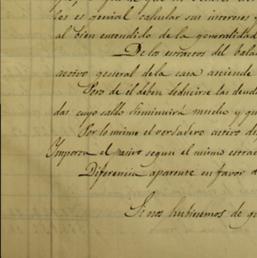 les es genial calcular sus intereses y
al bien entendido de la generalidad
De los extractos del bala
activo general de la casa asciende
Pero de él deben deducirse las deuda
das cuyo saldo disminuirá mucho y qu
Por lo mismo el verdadero activo de
Importa el pasivo segun el mismo extrac
Diferencia aparente en favor d
Si nos hubiesemos de gu